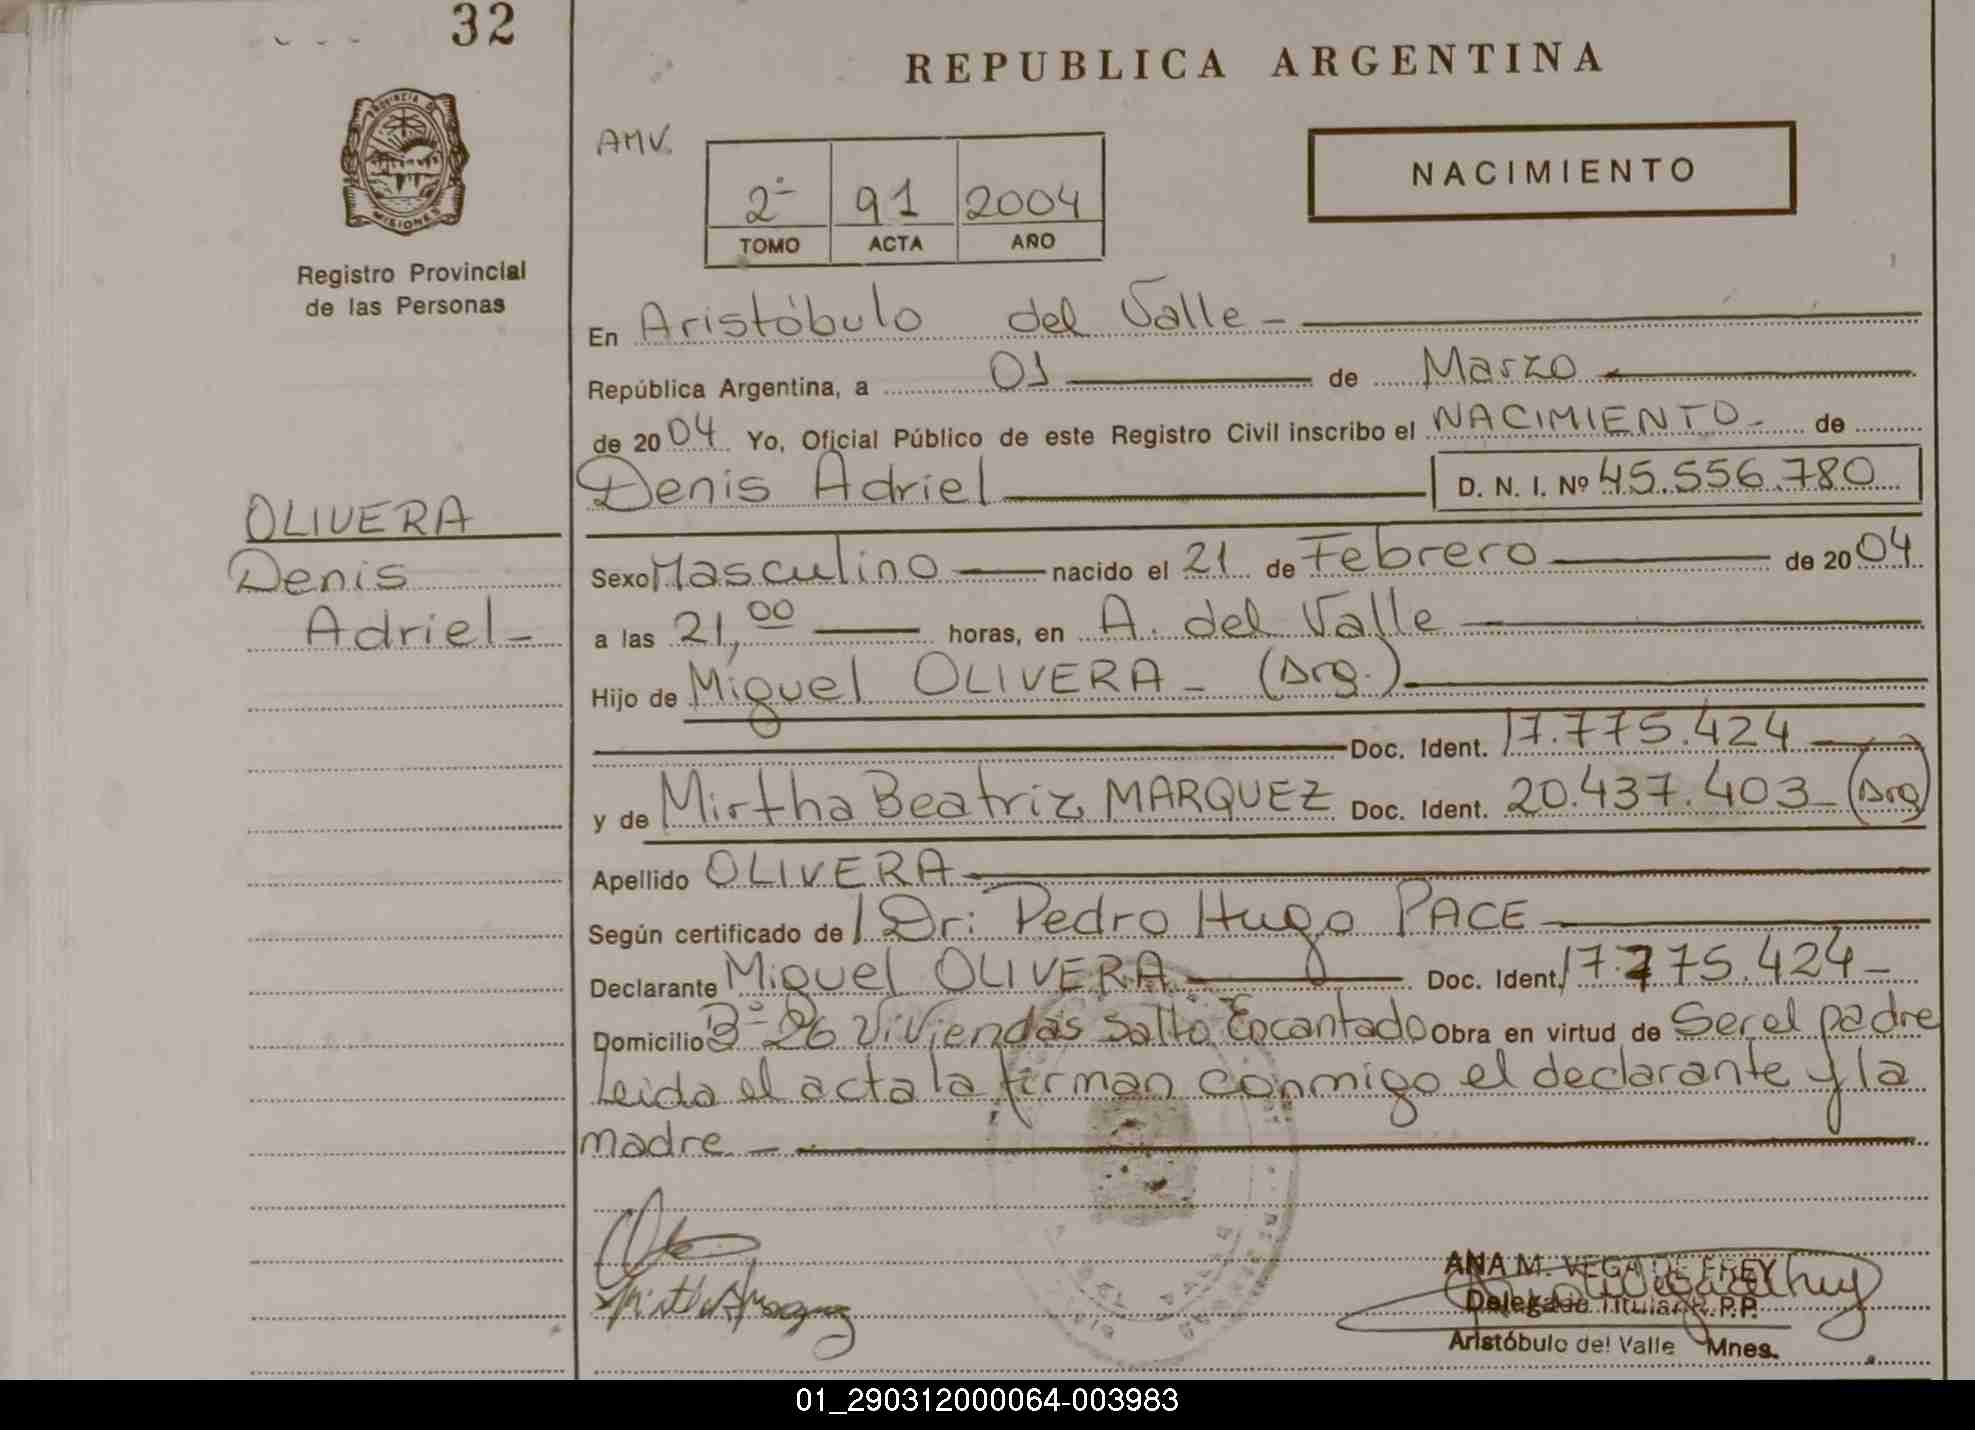 32
REPUBLICA ARGENTINA
PROVINCIA DE
MISIONES
Registro Provincial
de las Personas
AMV.
2º 91 2004
TOMO ACTA AÑO
NACIMIENTO
En Aristóbulo del Valle -
República Argentina, a 01 de Marzo
de 2004 Yo, Oficial Público de este Registro Civil inscribo el NACIMIENTO - de
Denis Adriel D. N. I. Nº 45.556.780
OLIVERA
Denis
Adriel -
Sexo Masculino nacido el 21 de Febrero de 2004
a las 21,00 horas, en A. del Valle
Hijo de Miguel OLIVERA - (Arg.)
Doc. Ident. 17.775.424
y de Mirtha Beatriz MARQUEZ Doc. Ident. 20.437.403 - (Arg
Apellido OLIVERA
Según certificado de Dr: Pedro Hugo PACE
Declarante Miguel OLIVERA Doc. Ident. 17.775.424 -
Domicilio Bº 26 Viviendas Salto Encantado Obra en virtud de Ser el padre
Leida el acta la firman conmigo el declarante y la
madre -
ANA M. VEGA DE FREY
Delegado Titular R.P.P.
Aristóbulo del Valle Mnes.
01_290312000064-003983